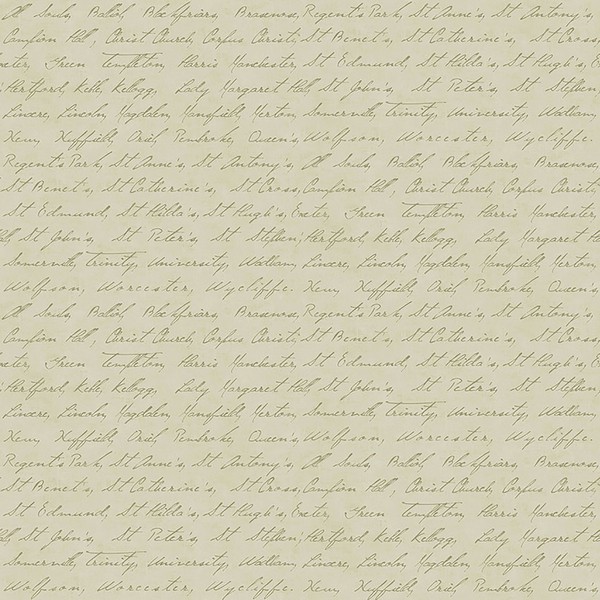 All Souls, Balliol, Blackfriars, Brasenose, Regent's Park, St Anne's, St Antony's,
Campion Hall, Christ Church, Corpus Christi, St Benet's, St Catherine's, St Cross,
Exeter, Green Templeton, Harris Manchester, St Edmund, St Hilda's, St Hugh's,
Hertford, Keble, Kellogg, Lady Margaret Hall, St John's, St Peter's, St Stephen
Linacre, Lincoln, Magdalen, Mansfield, Merton, Somerville, Trinity, University, Wadham,
New, Nuffield, Oriel, Pembroke, Queen's, Wolfson, Worcester, Wycliffe.
Regent's Park, St Anne's, St Antony's, All Souls, Balliol, Blackfriars, Brasenose,
St Benet's, St Catherine's, St Cross, Campion Hall, Christ Church, Corpus Christi
St Edmund, St Hilda's, St Hugh's, Exeter, Green Templeton, Harris Manchester,
St John's, St Peter's, St Stephen' Hertford, Keble, Kellogg, Lady Margaret
Somerville, Trinity, University, Wadham, Linacre, Lincoln, Magdalen, Mansfield, Merton
Wolfson, Worcester, Wycliffe. New, Nuffield, Oriel, Pembroke, Queen's,
All Souls, Balliol, Blackfriars, Brasenose, Regent's Park, St Anne's, St Antony's,
Campion Hall, Christ Church, Corpus Christi, St Benet's, St Catherine's, St Cross,
Exeter, Green Templeton, Harris Manchester, St Edmund, St Hilda's, St Hugh's,
Hertford, Keble, Kellogg, Lady Margaret Hall, St John's, St Peter's, St Stephen
Linacre, Lincoln, Magdalen, Mansfield, Merton, Somerville, Trinity, University, Wadham,
New, Nuffield, Oriel, Pembroke, Queen's, Wolfson, Worcester, Wycliffe.
Regent's Park, St Anne's, St Antony's, All Souls, Balliol, Blackfriars, Brasenose,
St Benet's, St Catherine's, St Cross, Campion Hall, Christ Church, Corpus Christi
St Edmund, St Hilda's, St Hugh's, Exeter, Green Templeton, Harris Manchester,
St John's, St Peter's, St Stephen' Hertford, Keble, Kellogg, Lady Margaret
Somerville, Trinity, University, Wadham, Linacre, Lincoln, Magdalen, Mansfield, Merton
Wolfson, Worcester, Wycliffe. New, Nuffield, Oriel, Pembroke, Queen's,